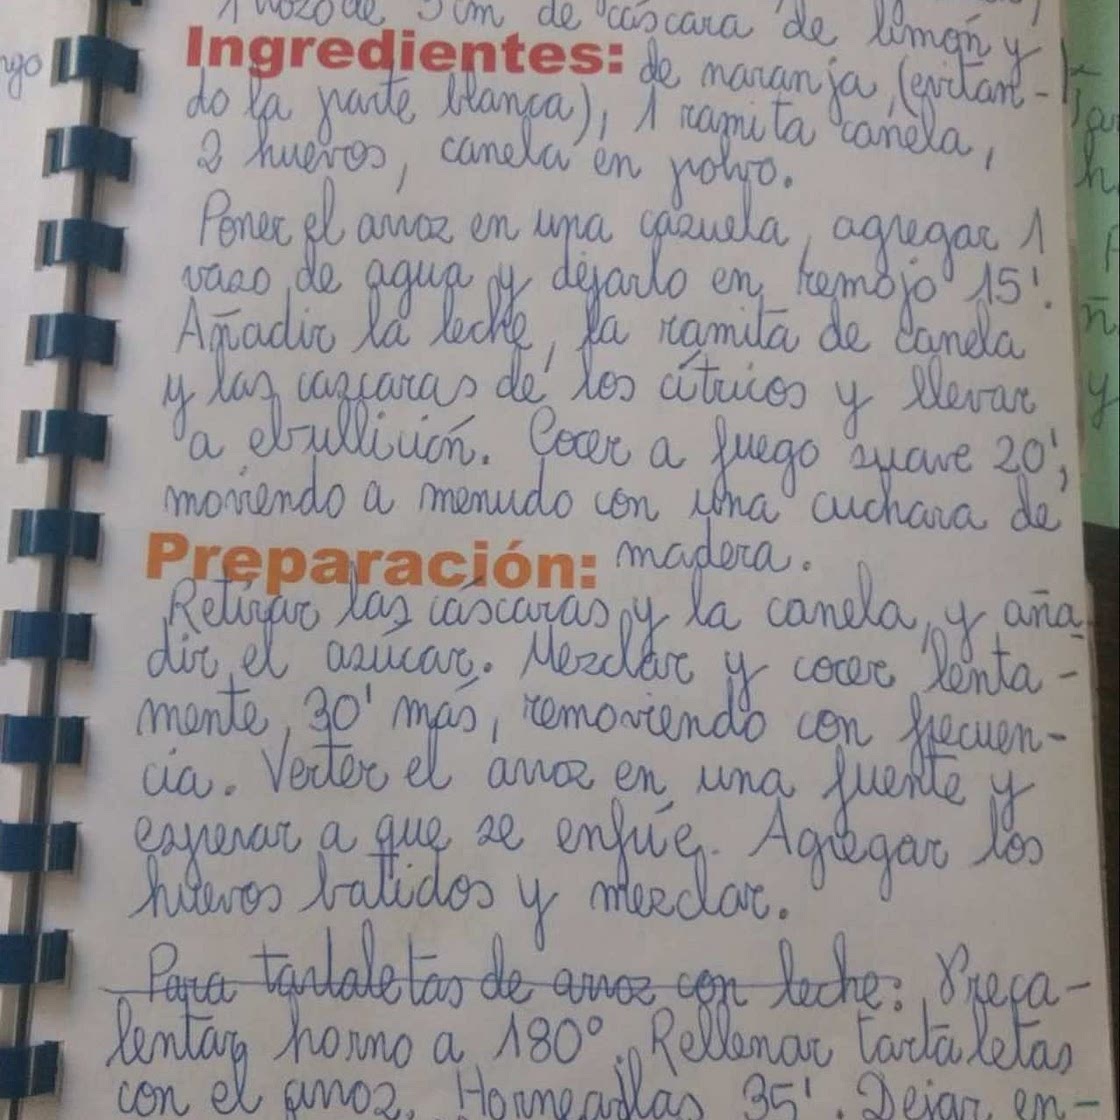 1 trozo de 5 cm de cáscara de limón y
Ingredientes: de naranja, (evitan-
do la parte blanca), 1 ramita canela,
2 huevos, canela en polvo.
Poner el arroz en una cazuela, agregar 1
vaso de agua y dejarlo en remojo 15'.
Añadir la leche, la ramita de canela
y las cazcaras de los cítricos y llevar
a ebullición. Cocer a fuego suave 20',
moviendo a menudo con una cuchara de
Preparación: madera.
Retirar las cáscaras y la canela, y aña-
dir el azúcar. Mezclar y cocer lenta-
mente, 30' más, removiendo con frecuen-
cia. Verter el arroz en una fuente y
esperar a que se enfríe. Agregar los
huevos batidos y mezclar.
Para tartaletas de arroz con leche: Preca-
lentar horno a 180°. Rellenar tartaletas
con el arroz. Hornearlas 35'. Dejar en-